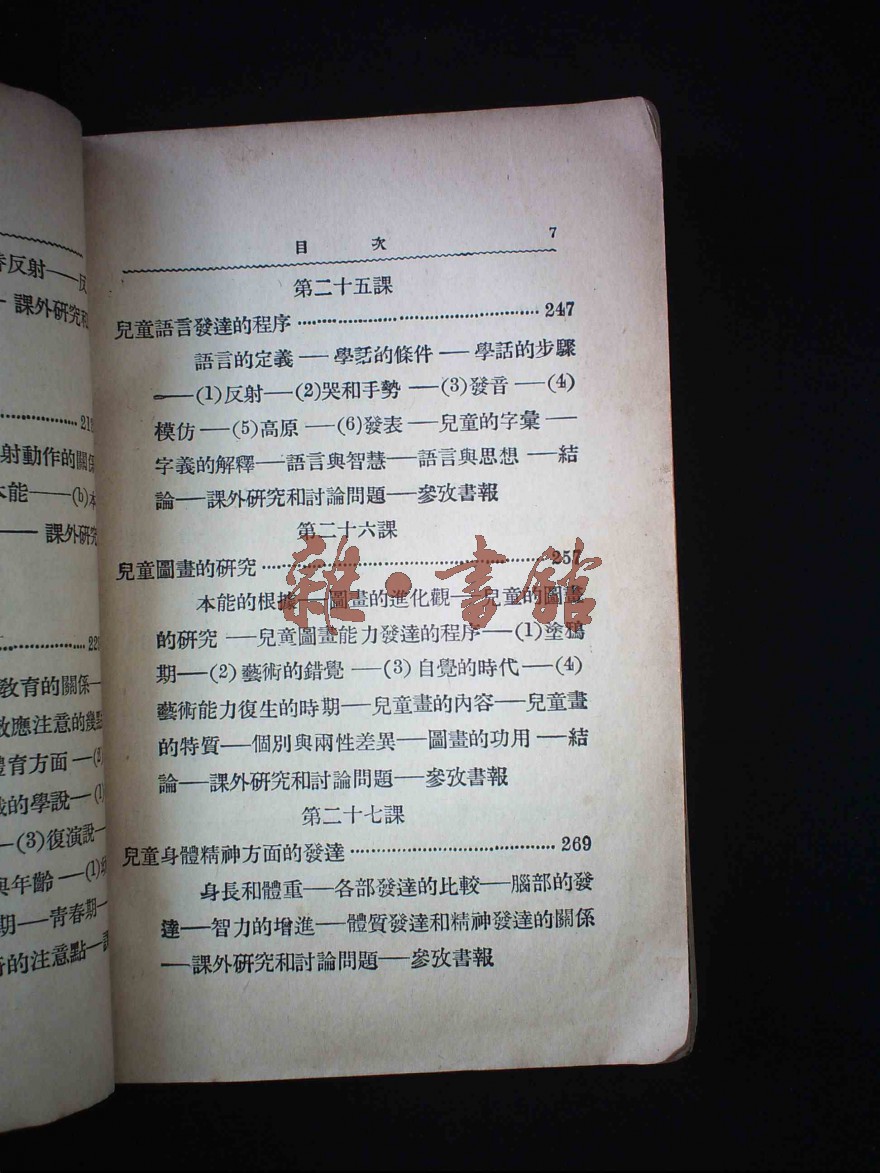 目 次 7
第二十五課
兒童語言發達的程序 247
語言的定義——學話的條件——學話的步驟
——(1)反射——(2)哭和手勢——(3)發音——(4)
模仿——(5)高原——(6)發表——兒童的字彙——
字義的解釋——語言與智慧——語言與思想——結
論——課外研究和討論問題——參攷書報
第二十六課
兒童圖畫的研究 257
本能的根據——圖畫的進化觀——兒童的圖畫
的研究——兒童圖畫能力發達的程序——(1)塗鴉
期——(2)藝術的錯覺——(3)自覺的時代——(4)
藝術能力復生的時期——兒童畫的內容——兒童畫
的特質——個別與兩性差異——圖畫的功用——結
論——課外研究和討論問題——參攷書報
第二十七課
兒童身體精神方面的發達 269
身長和體重——各部發達的比較——腦部的發
達——智力的增進——體質發達和精神發達的關係
——課外研究和討論問題——參攷書報
雜·書館
反射——反
課外研究和
21
射動作的關係
本能——(b)本
——課外研究
22
教育的關係—
效應注意的幾點
體育方面——(2)
的學說——(1)
——(3)復演說—
與年齡——(1)幼
期——青春期—
的注意點—課